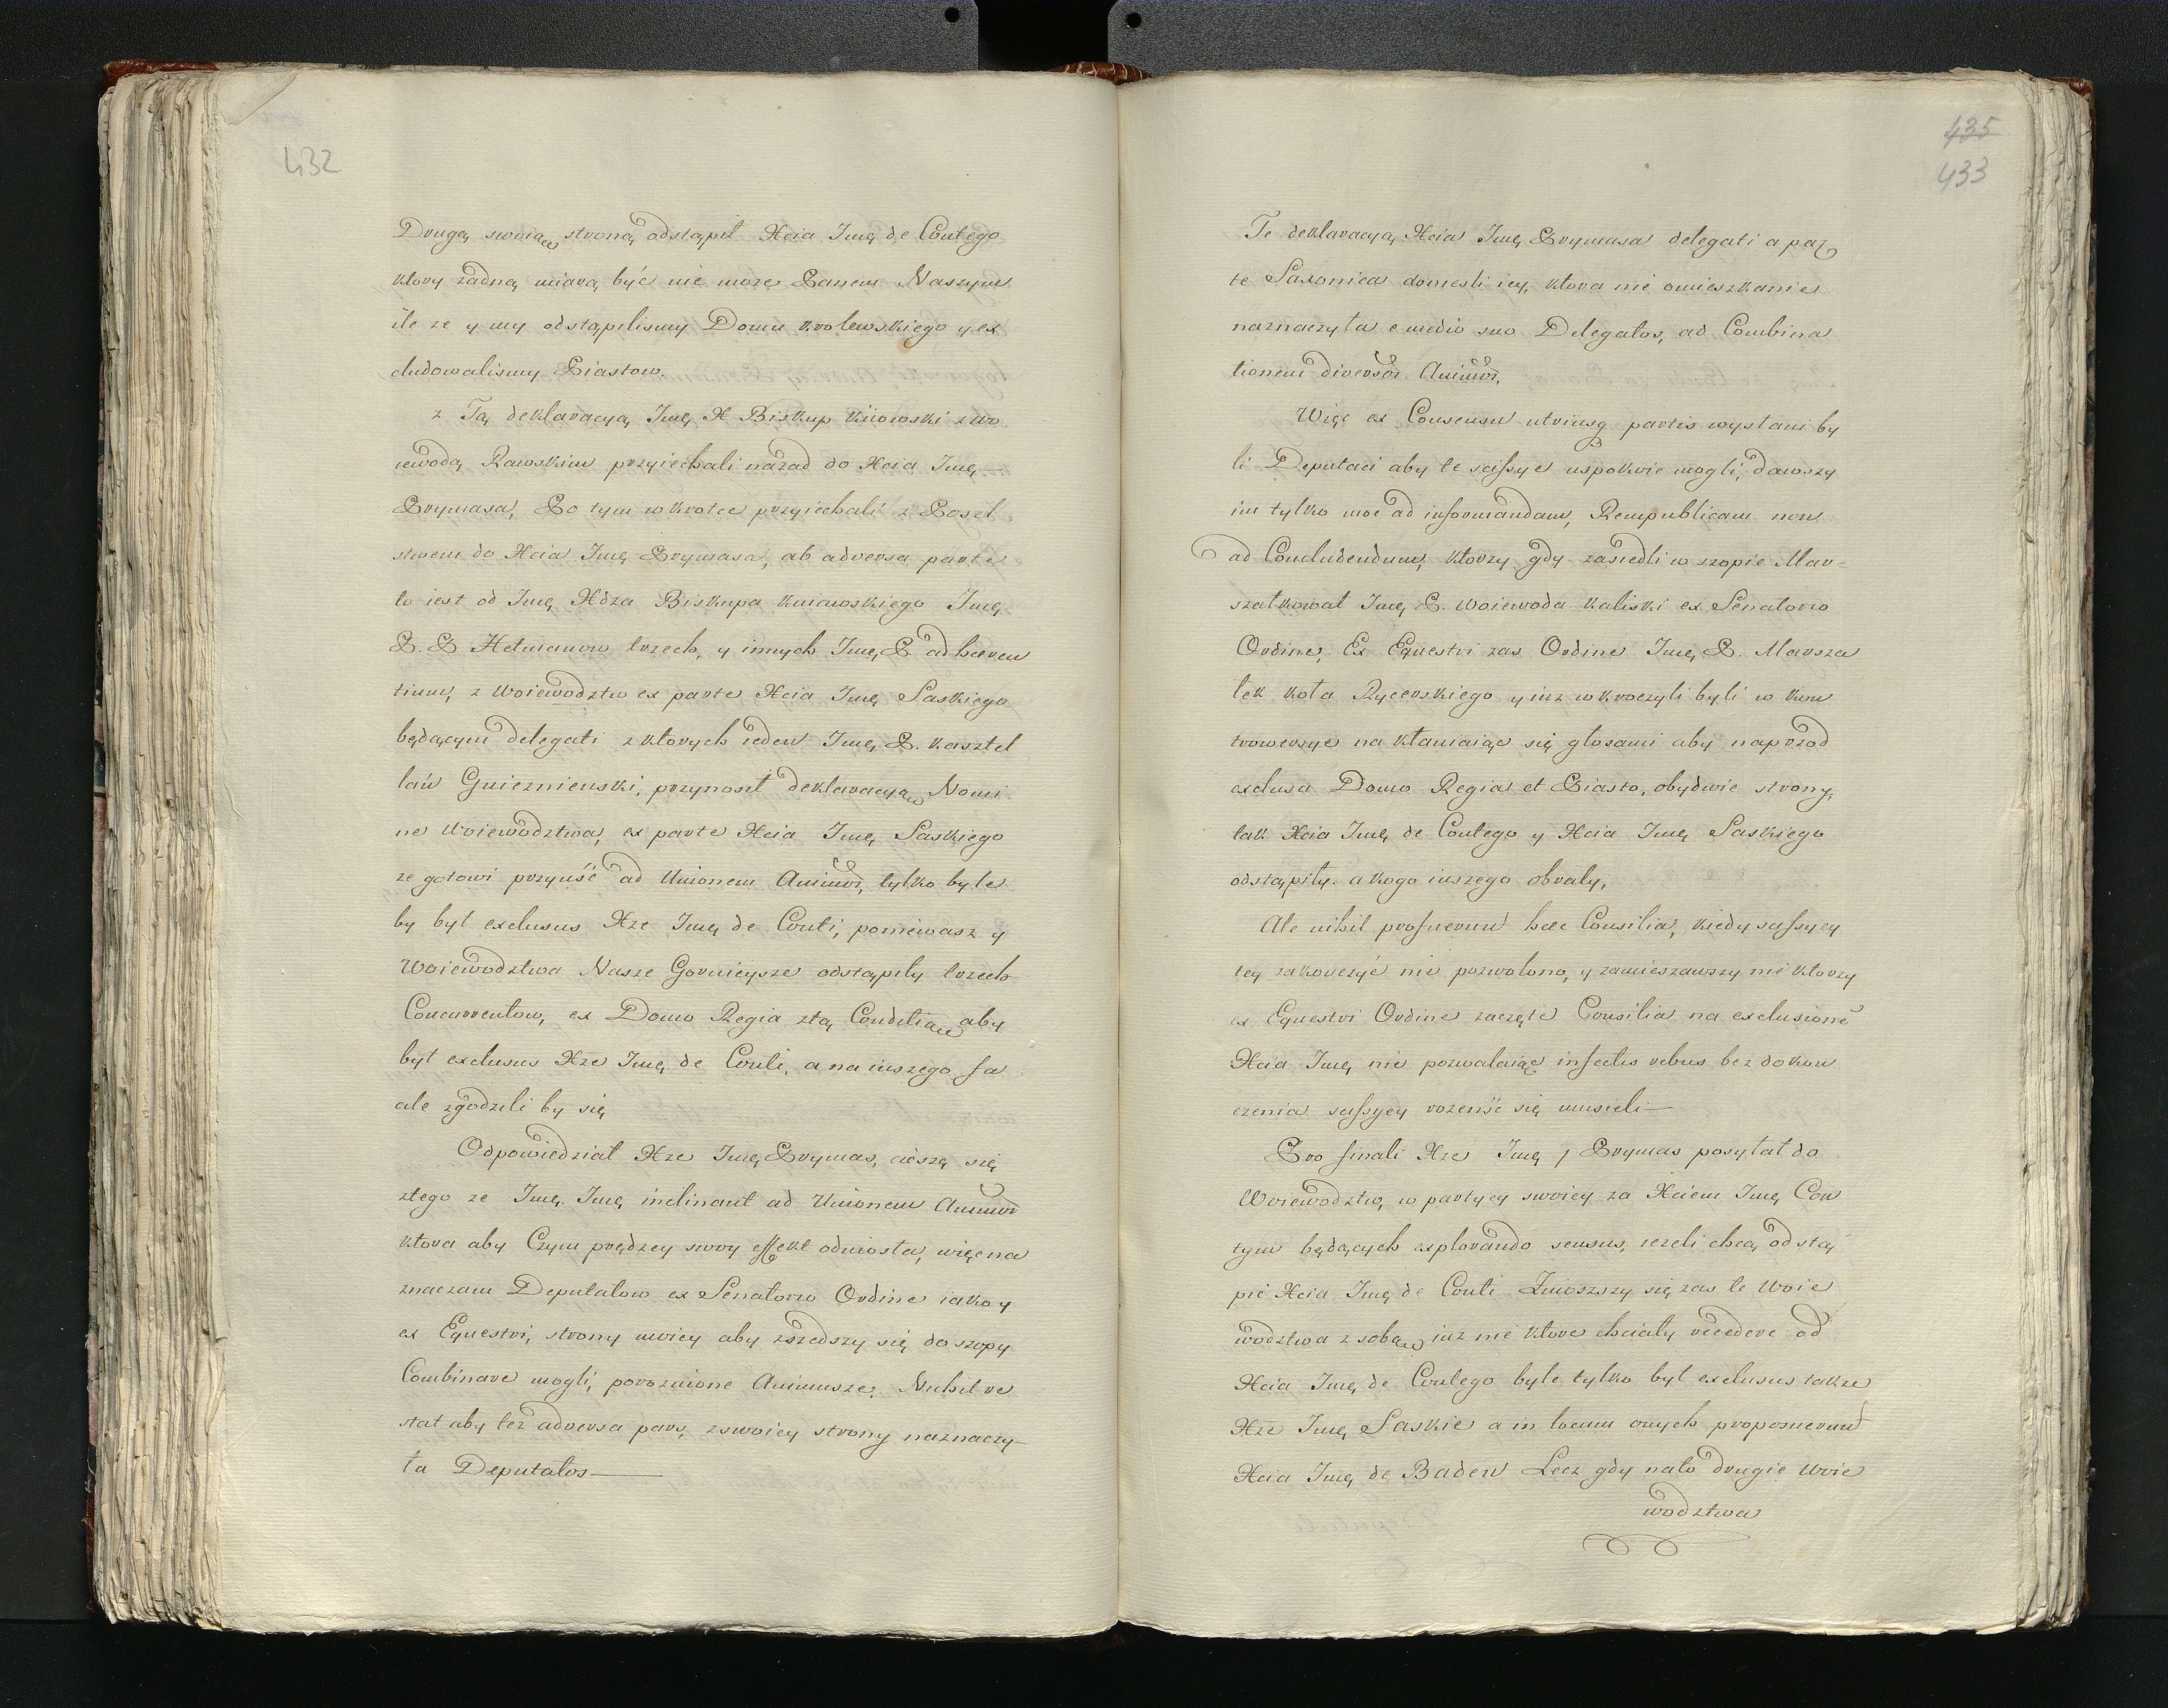 432
Drugą swoią stroną odstąpił Xcia Jmę de Contego
ktory zadną miarą być nie moze Panem Naszym
ile ze y my odstąpilismy Domu krolewskiego y ex
cludowalismy Piastow.
z Tą deklaracyą Jmę X Biskup kiiowski z wo
iewodą Rawskim przyiechali nazad do Xcia Jmę
Prymasa, Po tym wkrotce przyiechali z Posel
stwem do Xcia Jmę Prymasa, ab adversa parte
to iest od Jmę Xdza Biskupa kuiawskiego Jmę
P. P Hetmanow trzech, y innych Jmę P. adhæren
tium, z Woiewodztw ex parte Xcia Jmę Saskiego
będącym delegati z ktorych ieden Jmę P. kasztel
lan Gnieznienski, przynosił deklaracyą Nomi
ne Woiewodztwa, ex parte Xcia Jmę Saskiego
ze gotowi przyiść ad Unionem Animor, tylko byle
by był exclusus Xze Jmę de Conti, poniewasz y
Woiewodztwa Nasze Gornieysze odstąpiły trzech
Concurrentow, ex Domo Regia ztą Conditią aby
był exclusus Xze Jmę de Conti, a na inszego fa
ale zgodzili by się
Odpowiedział Xze Jmę Prymas, cieszę się
ztego ze Jmę. Jmę inclinant ad Unionem Animor
ktora aby Czym prędzey swoy effekt odniosła, więc na
znaczam Deputatow ex Senatorio Ordine iako y
ex Equestri, strony moiey aby zszedszy się do szopy
Combinare mogli, poroznione Animusze. Nichil re
stat aby tez adversa pars, zswoiey strony naznaczy
ła Deputatos
435
433
Te deklaracyą Xcia Jmę Prymasa delegati a par
te Saxonica doniesli iey, ktora nie omieszkanie
naznaczyła e medio suo Delegatos, ad Combina
tionem diversor Animor,
Więc ex Consensu utriusq partis wysłani by
li Deputaci aby te scissye uspokoic mogli, dawszy
im tylko moc ad informandam, Rempublicam non
ad Concludendum, ktorzy gdy zasiedli w szopie Mar=
szałkował Jmę P. Woiewoda kaliski ex Senatorio
Ordine, Ex Equestri zas Ordine Jmę P. Marsza
łek koła Rycerskiego y iuz wkroczyli byli w kon
trowersye nakłaniaiąc się głosami aby naprzod
exclusa Domo Regia et Piasto, obydwie strony,
tak Xcia Jmę de Contego y Xcia Jmę Saskiego
odstąpiły. a kogo inszego obrały,
Ale nihil profuerun hæc Consilia, kiedy sessyey
tey zakonczyć nie pozwolono, y zamieszawszy nie ktorzy
ex Equestri Ordine zaczęte Consilia na exclusione
Xcia Jmę nie pozwalaiąc infectis rebus bez dokon
czenia sessyey rozeniść się musieli
Pro finali Xze Jmę Prymas posyłał do
Woiewodztw, w partyey swoiey za Xciem Jmę Con
tym będących explorando sensus, iezeli chcą odstą
pić Xcia Jmę de Conti Znioszszy się zas te Woie
wodztwa z sobą, iuz nie ktore chciały recedere od
Xcia Jmę de Contego byle tylko był exclusus takze
Xze Jmę Saskie a in locum onych proposuerunt
Xcia Jmę de Baden Lecz gdy nato drugie Woie
wodztwa